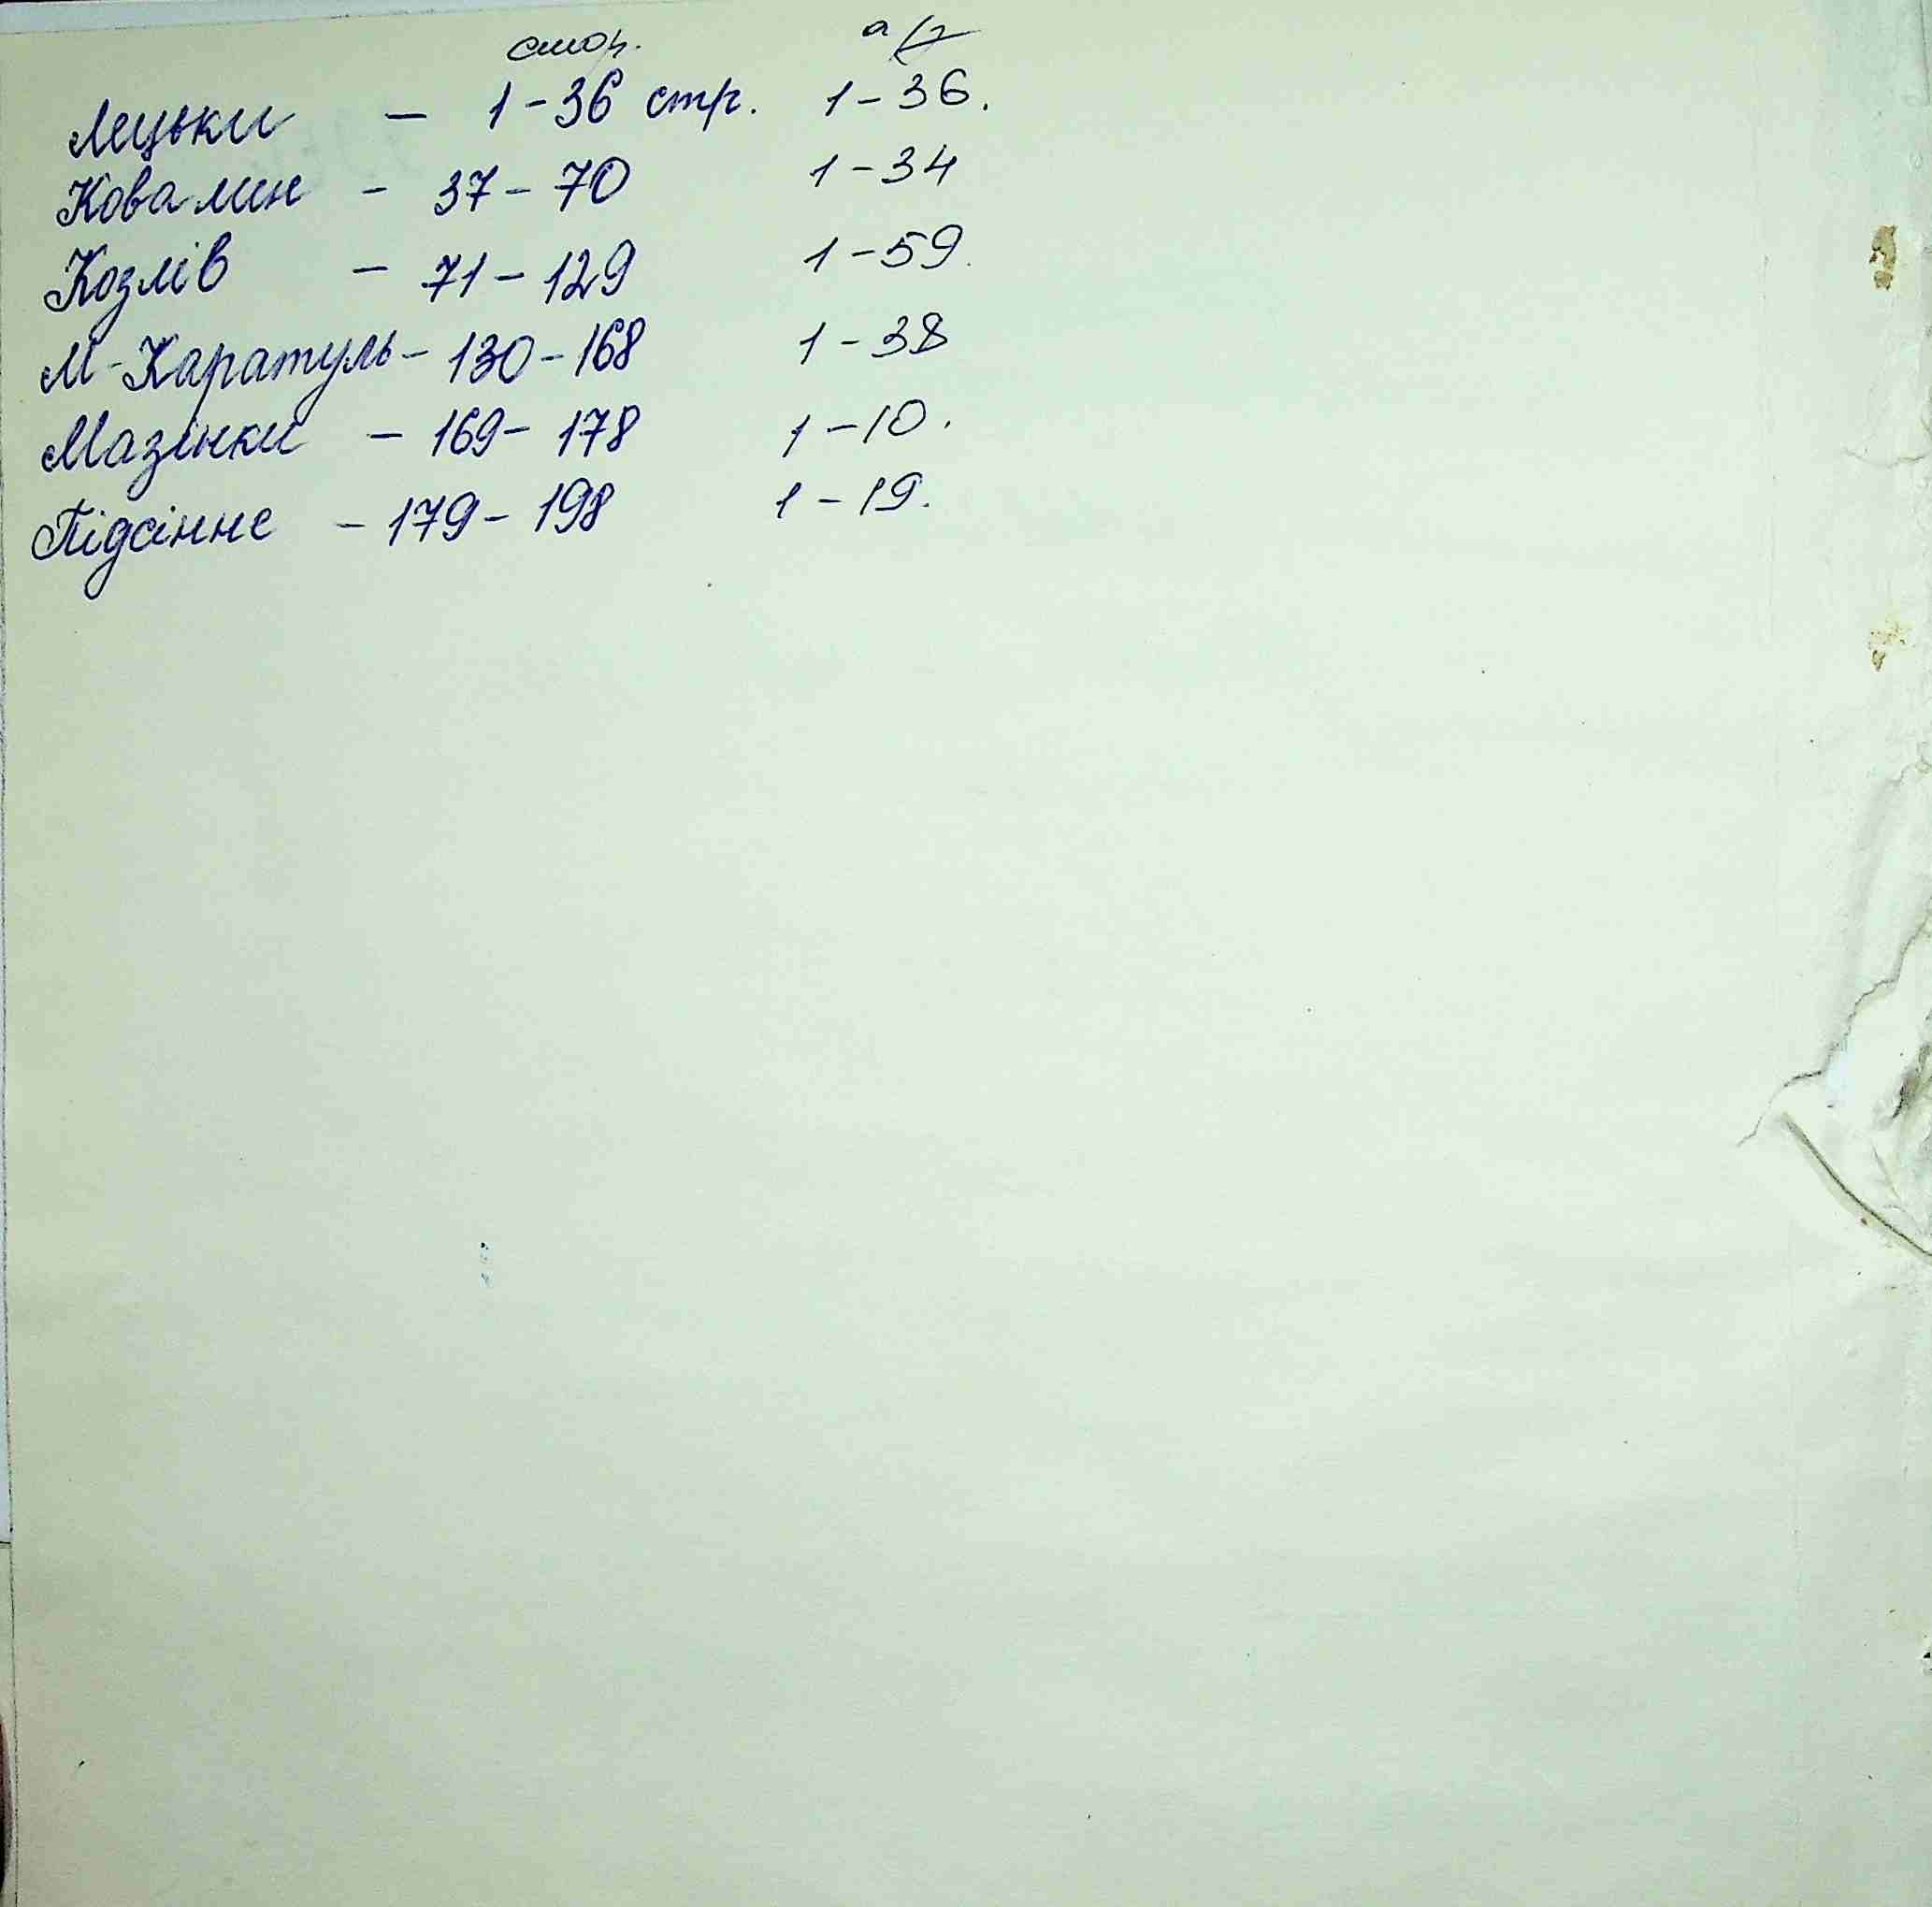 стор. а/р
Лецьки – 1-36 стр. 1-36.
Ковалин – 37-70 1-34
Козлів – 71-129 1-59.
М-Каратуль – 130-168 1-38
Мазінки – 169-178 1-10.
Підсінне – 179-198 1-19.